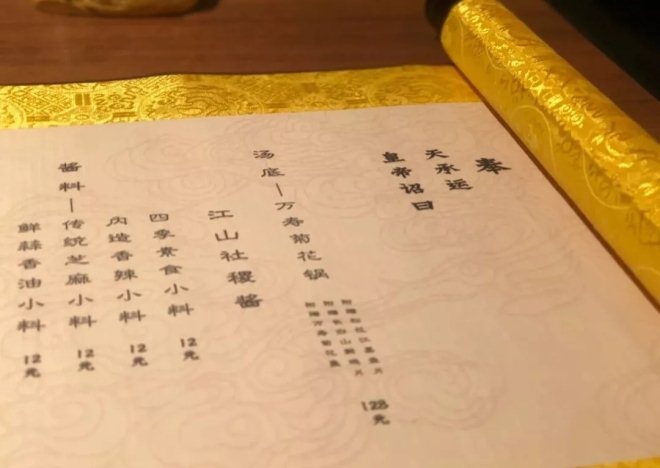 奉
天承运
皇帝诏曰
汤底—万寿菊花锅
128元
江山社稷酱
四季素食小料
12元
内造香辣小料
12元
酱料—传统芝麻小料
12元
鲜蒜香油小料
12元